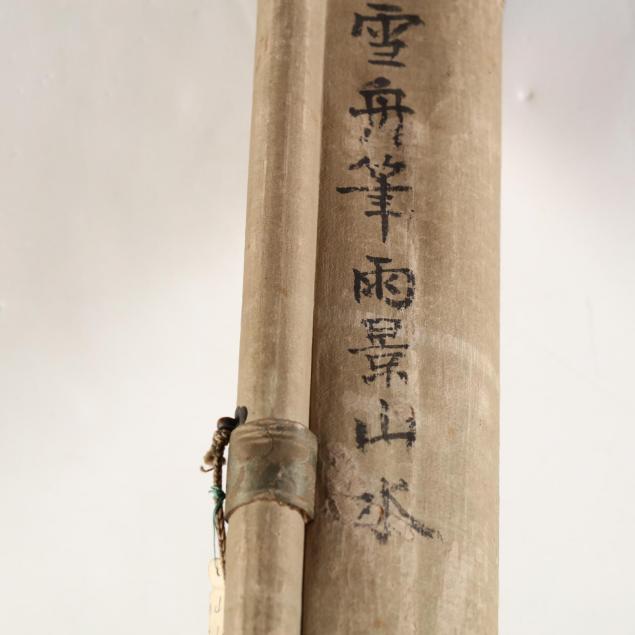 雪舟筆雨景山水